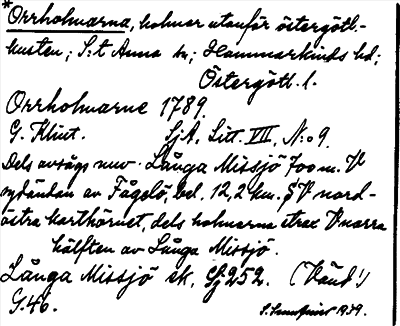 *Orrholmarna, holmar utanför östergötl.-
kusten; S:t Anna sn; Hammarkinds hd;
Östergötl. l.
Orrholmarne 1789.
G. Klint. SjA, Litt. VIII, N:o 9.
Dels avsågs nuv. Långa Missjö 700 m. V
sydändan av Fågelö, bel. 12,2 km. SV nord-
östra karthörnet, dels holmarna strax V norra
hälften av Långa Missjö.
Långa Missjö ek. 252. (Vänd!)
G. 46. 1939.